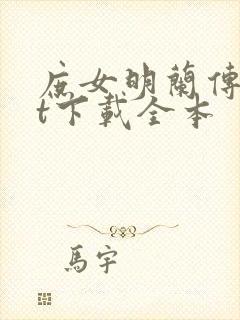 庶女明蘭傳
t下載全本
馬宇